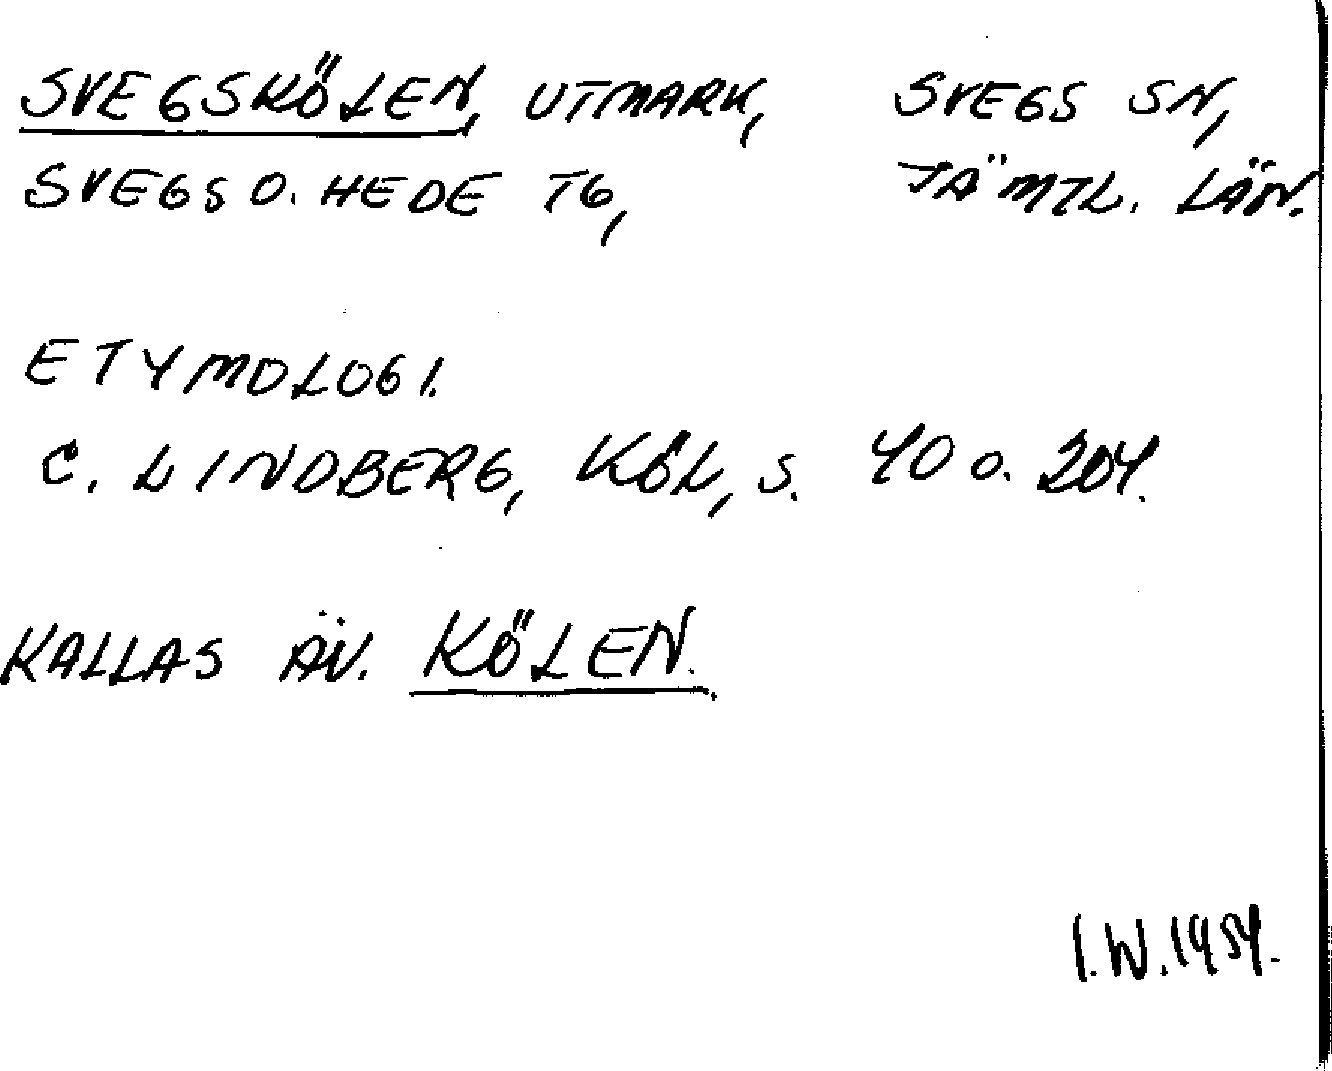 SVEGSKÖLEN, UTMARK, SVEGS SN,
SVEGS O. HEDE TG, JÄMTL. LÄN.
ETYMOLOGI.
C. LINDBERG, KÖL, S. 40 O. 204.
KALLAS ÄV. KÖLEN.
I.W. 1954.